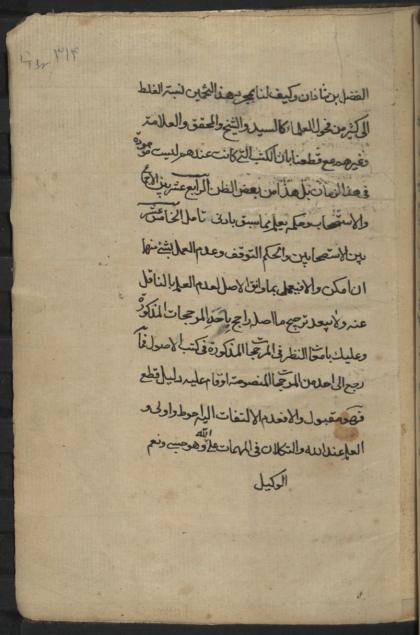 ٣١٤
الفضل بن شاذان وكيف لنا بمجرد هذا التخمين نسبة الغلط
الى كثير من فحول العلماء كالسيد والشيخ والمحقق والعلامة
وغيرهم مع قطعنا بان الكتب التى كانت عندهم ليست موجودة
فى هذا الزمان بل هذا من بعض الظن الرابع عشر بين
والاستصحاب وحكمه يعلم مما سبق بادنى تامل الخامس عشر
بين الاستصحابين والحكم التوقف وعدم العمل بشئ منهما
ان امكن والا فيعمل بما وافق الاصل لعدم العلم بالناقل
عنه ولا يبعد ترجيح ما اصله راجح باحد المرجحات المذكورة
وعليك بامعان النظر فى المرجحات المذكورة فى كتب الاصول فما
رجع الى احد من المرجحات المنصوصة او قام عليه دليل قطع
فهو مقبول والا فعدم الالتفات اليه احوط واولى و
العلم عند الله والتكلان فى المهمات على الله وهو حسبى ونعم
الوكيل